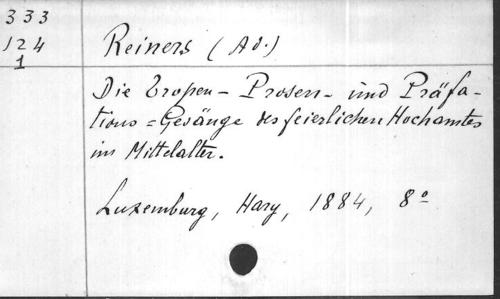 333
124
1
Reiners (Ad.)
Die Tropen- Prosen- und Präfa-
tions=Gesänge des feierlichen Hochamtes
im Mittelalter.
Luxemburg, Hary, 1884, 8°